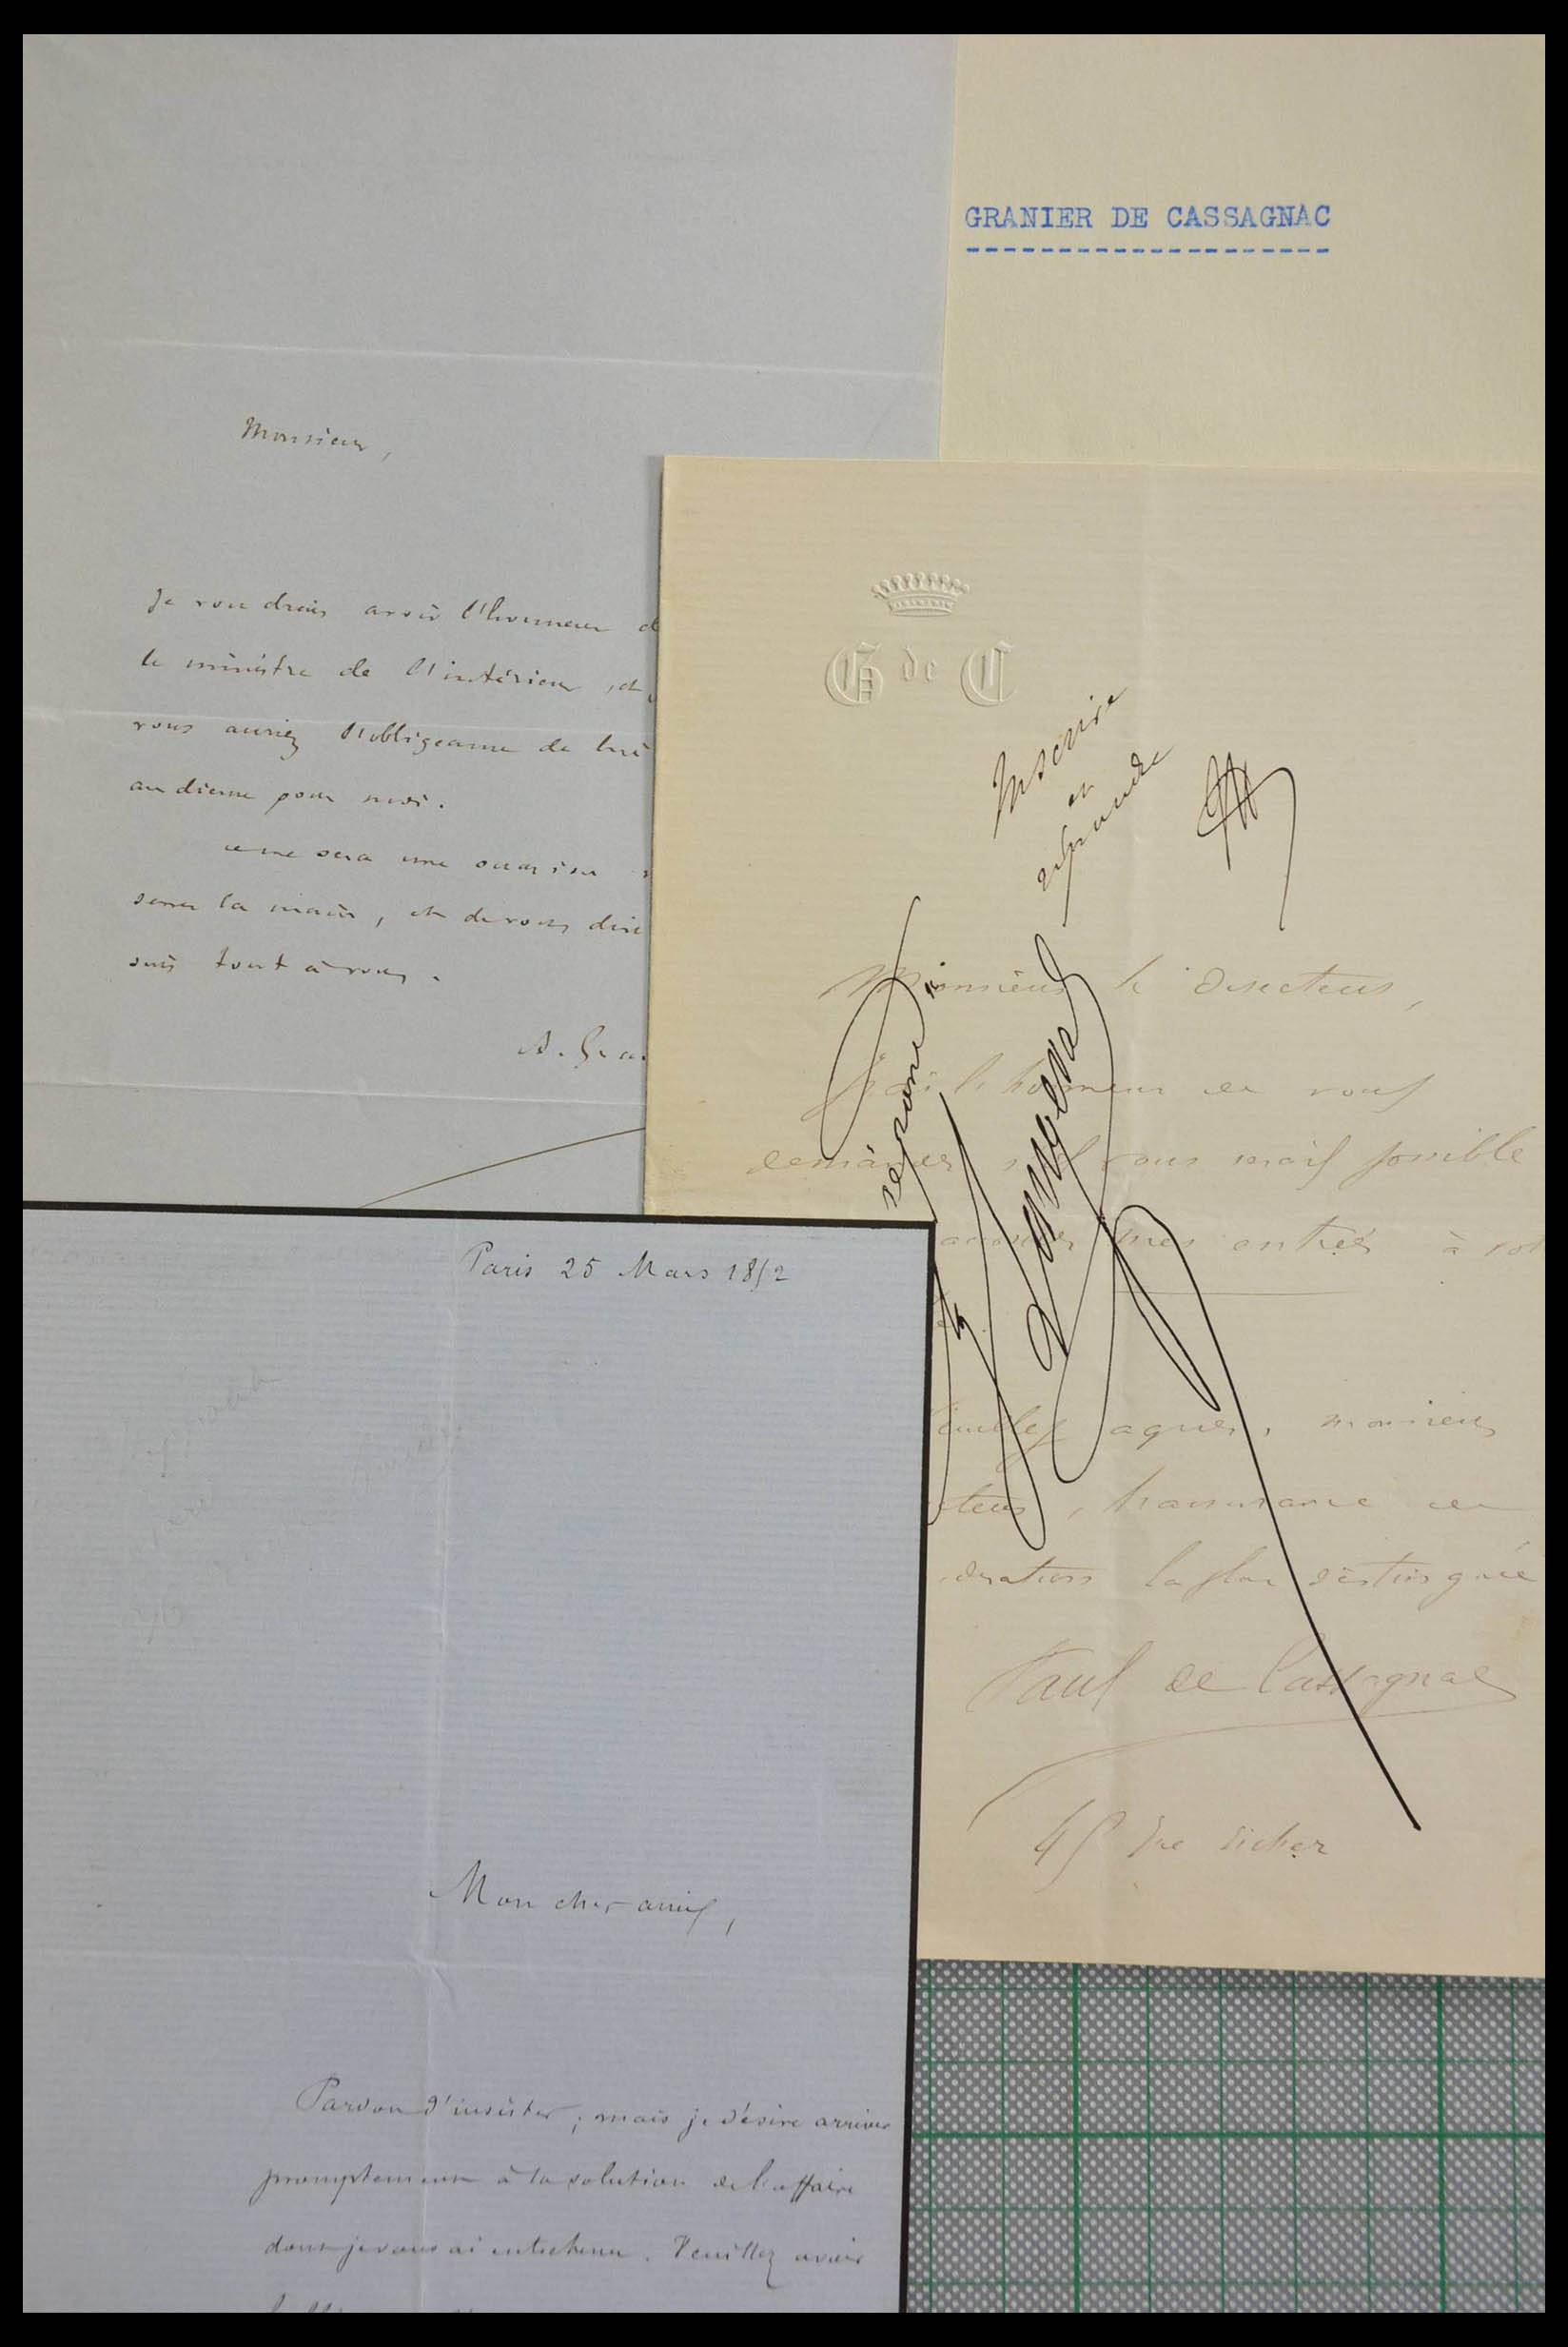 GRANIER DE CASSAGNAC
Monsieur,
Je voudrais avoir l'honneur d
le ministre de l'intérieur, et
vous auriez l'obligeance de lui
audience pour moi.
ce me sera une occasion
serrer la main, et de vous dire
suis tout à vous.
A. Gra
G de C
Inscrire
et
répondre
Monsieur le Directeur,
J'ai l'honneur de vous
demander s'il vous serait possible
mes entrées à vot
répondu
Veuillez agréer, monsieur
cteur, l'assurance de
dération la plus distinguée
Paul de Cassagnac
45 rue Richer
Paris 25 Mars 1852
Mon cher ami,
Pardon d'insister; mais je désire arriver
promptement à la solution de l'affaire
dont je vous ai entretenu. Veuillez avoir